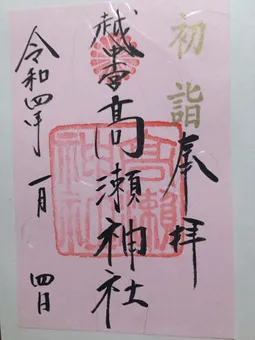 初詣
奉拝
越中一宮高瀬神社
令和四年 一月 四日